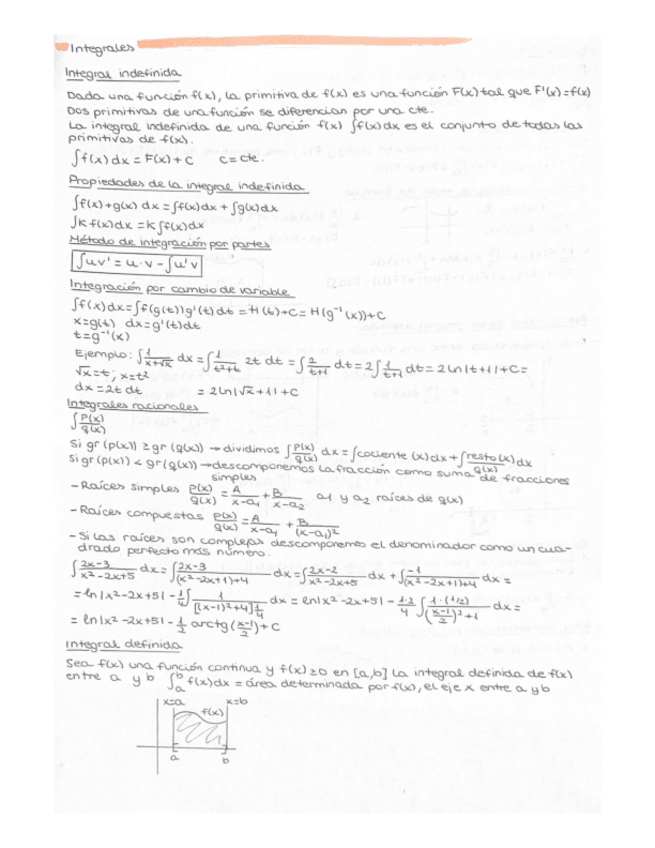 Integrales
Integral indefinida
Dada una función f(x), la primitiva de f(x) es una función F(x) tal que F'(x)=f(x)
Dos primitivas de una función se diferencian por una cte.
La integral indefinida de una función f(x) ∫f(x)dx es el conjunto de todas las
primitivas de f(x).
∫f(x)dx = F(x)+C   C=cte.
Propiedades de la integral indefinida
∫f(x)+g(x) dx = ∫f(x)dx + ∫g(x)dx
∫k f(x)dx = k∫f(x)dx
Método de integración por partes
∫u v' = u·v - ∫u'v
Integración por cambio de variable
∫f(x)dx = ∫f(g(t))g'(t)dt = H(t)+C = H(g⁻¹(x))+C
x=g(t)  dx=g'(t)dt
t=g⁻¹(x)
Ejemplo: ∫1/(x+√x) dx = ∫1/(t²+t) 2t dt = ∫2/(t+1) dt = 2∫1/(t+1) dt = 2ln|t+1|+C =
√x=t; x=t²
dx=2t dt   = 2ln|√x+1|+C
Integrales racionales
∫P(x)/Q(x)
Si gr(p(x)) ≥ gr(q(x)) → dividimos ∫P(x)/q(x) dx = ∫cociente(x)dx + ∫resto(x)/q(x) dx
Si gr(p(x)) < gr(q(x)) → descomponemos la fracción como suma de fracciones
simples
- Raíces simples p(x)/q(x) = A/(x-a₁) + B/(x-a₂)  a₁ y a₂ raíces de q(x)
- Raíces compuestas p(x)/q(x) = A/(x-a₁) + B/(x-a₁)²
- Si las raíces son complejas descomponemos el denominador como un cua-
drado perfecto más número.
∫(2x-3)/(x²-2x+5) dx = ∫(2x-3)/((x²-2x+1)+4) dx = ∫(2x-2)/(x²-2x+5) dx + ∫-1/((x²-2x+1)+4) dx =
= ln|x²-2x+5| - 1/4 ∫1/([(x-1)²+4]1/4) dx = ln|x²-2x+5| - 1·2/4 ∫1·(1/2)/(((x-1)/2)²+1) dx =
= ln|x²-2x+5| - 1/2 arctg((x-1)/2)+C
Integral definida
Sea f(x) una función continua y f(x)≥0 en [a,b] La integral definida de f(x)
entre a y b ∫ₐᵇ f(x)dx = área determinada por f(x), el eje x entre a y b
x=a   x=b
f(x)
a   b